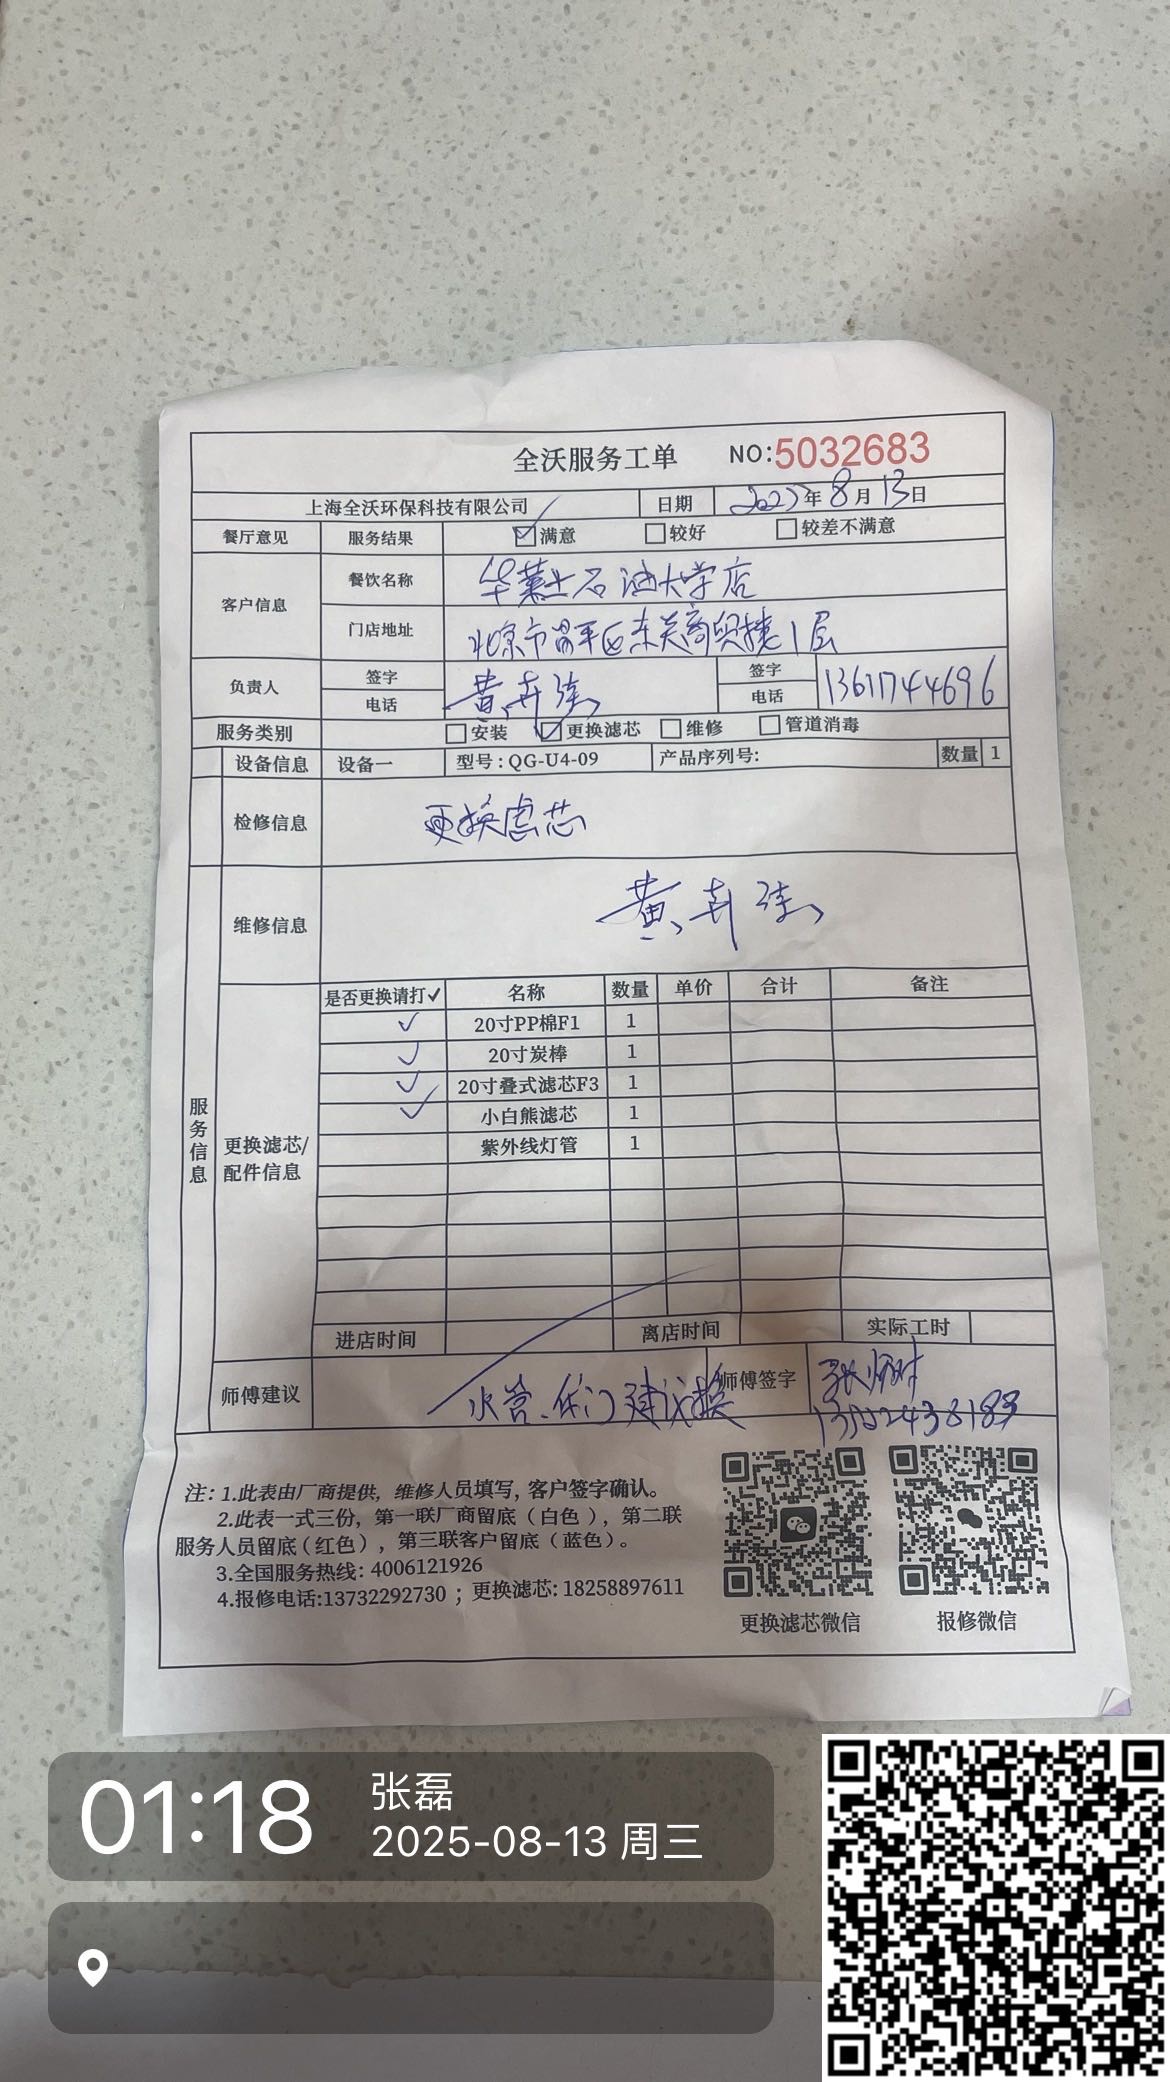 全沃服务工单 NO:5032683
上海全沃环保科技有限公司 日期 2025年8月13日
餐厅意见 服务结果 ☑满意 □较好 □较差不满意
客户信息 餐饮名称 华莱士石油大学店
门店地址 北京市昌平区东关商贸楼1层
负责人 签字 黄 签字
电话 电话 13617744696
服务类别 □安装 ☑更换滤芯 □维修 □管道消毒
设备信息 设备一 型号:QG-U4-09 产品序列号: 数量 1
检修信息 更换滤芯
维修信息 黄
服务信息
更换滤芯/
配件信息
是否更换请打✓ 名称 数量 单价 合计 备注
✓ 20寸PP棉F1 1
✓ 20寸炭棒 1
✓ 20寸叠式滤芯F3 1
✓ 小白熊滤芯 1
紫外线灯管 1
进店时间 离店时间 实际工时
师傅建议 水管、 门建议换 师傅签字 张
注: 1.此表由厂商提供, 维修人员填写, 客户签字确认。
2.此表一式三份, 第一联厂商留底(白色), 第二联
服务人员留底(红色), 第三联客户留底(蓝色)。
3.全国服务热线: 4006121926
4.报修电话:13732292730 ; 更换滤芯: 18258897611
更换滤芯微信 报修微信
01:18 张磊
2025-08-13 周三